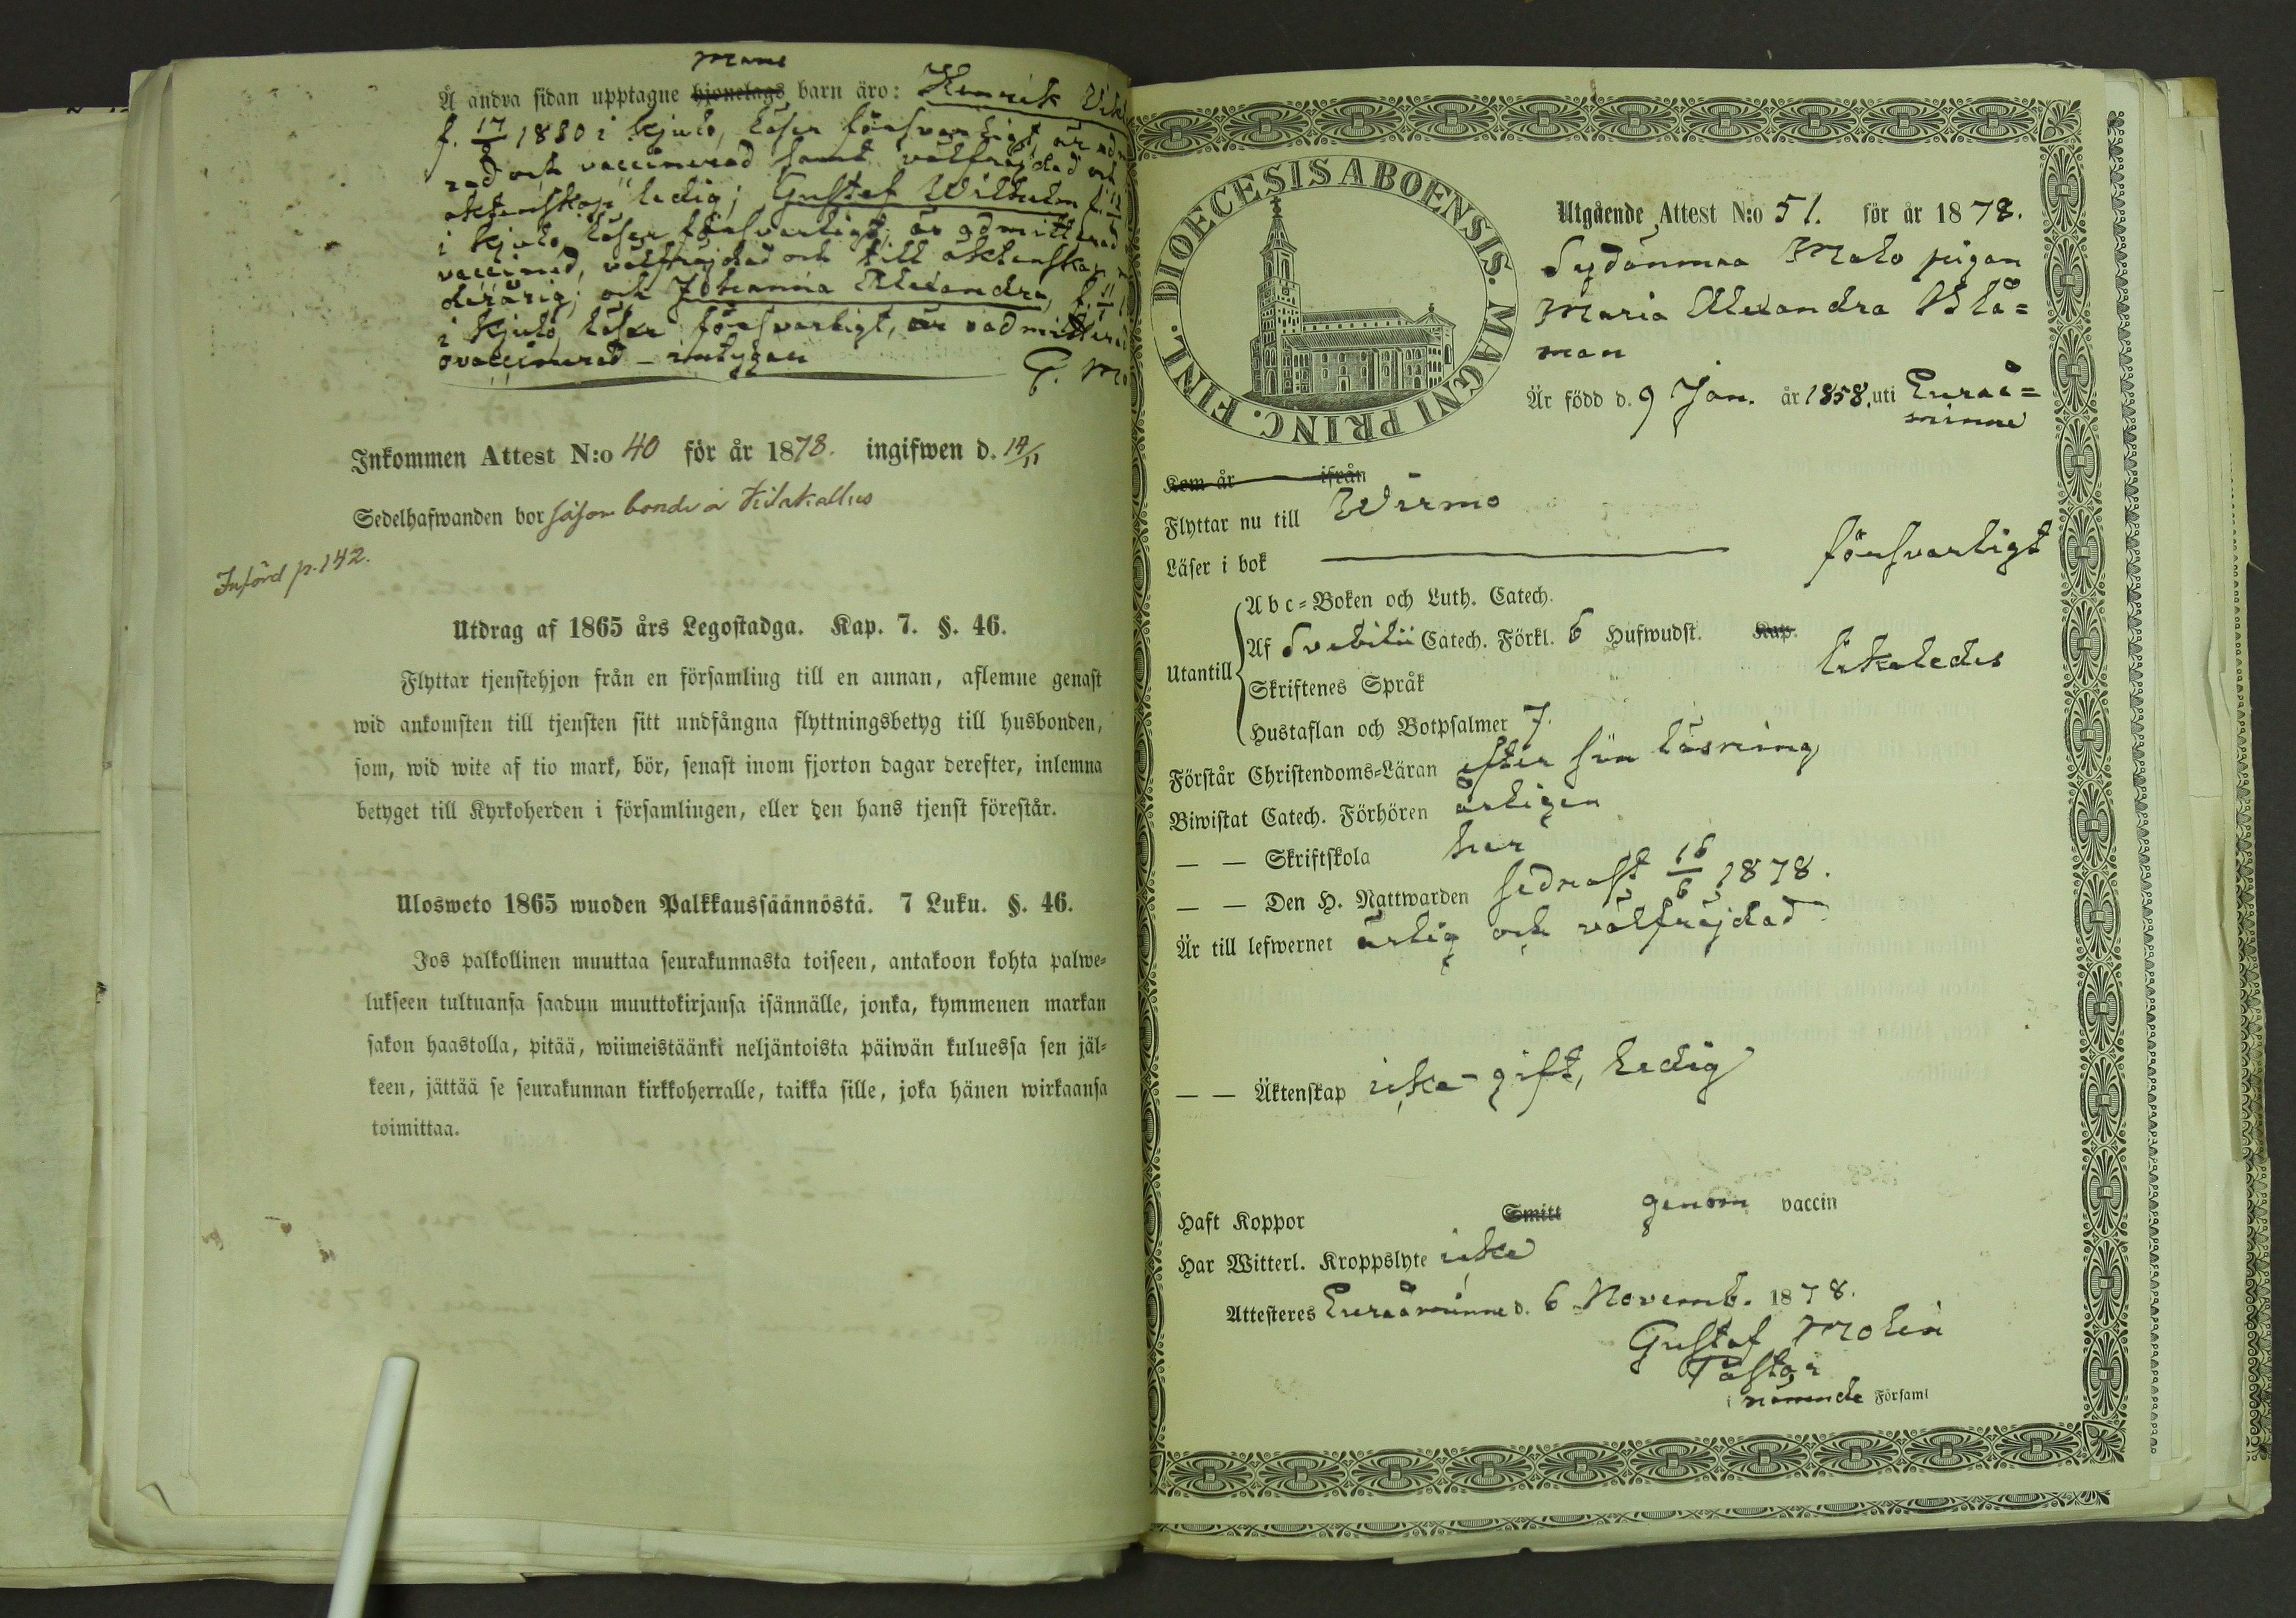 mans
Å andra sidan upptagne hjonelags barn äro: Henrik
f. 17 1880 i Kjulo, läser försvarligt, är
rad och vaccinerad samt välfräjdad och
äktenskap ledig; Gustaf Wilhelm f. 12
i Kjulo, läser försvarligt, är admitterad
vaccined, välfräjdad och till äktenskap
derårig; och Johanna Alexandra, f. 11
i Kjulo, läser försvarligt, är oadmitterad
ovaccinerad – intygar
G. Mo
Inkommen Attest N:o 40 för år 1878. ingifwen d. 14/11
Sedelhafwanden bor såsom bonde å
Införd p. 142.
Utdrag af 1865 års Legostadga. Kap. 7. §. 46.
Flyttar tjenstehjon från en församling till en annan, aflemne genast
wid ankomsten till tjensten sitt undfångna flyttningsbetyg till husbonden,
som, wid wite af tio mark, bör, senast inom fjorton dagar derefter, inlemna
betyget till Kyrkoherden i församlingen, eller den hans tjenst förestår.
Ulosweto 1865 wuoden Palkkaussäännöstä. 7 Luku. §. 46.
Jos palkollinen muuttaa seurakunnasta toiseen, antakoon kohta palwe=
lukseen tultuansa saadun muuttokirjansa isännälle, jonka, kymmenen markan
sakon haastolla, pitää, wiimeistäänki neljäntoista päiwän kuluessa sen jäl=
keen, jättää se seurakunnan kirkkoherralle, taikka sille, joka hänen wirkaansa
toimittaa.
DIOECESIS ABOENSIS. MAGNI PRINC. FINL.
Utgående Attest N:o 51. för år 1878.
Sydänmaa Malo pigan
Maria Alexandra Blå=
man
Är född d. 9 Jan. år 1858. uti Euraå=
minne
Kom år ifrån
Flyttar nu till Wirmo
Läser i bok försvarligt
Utantill
Abc=Boken och Luth. Catech.
Af Svebilii Catech. Förkl. 6 Hufwudst. Kap.
likaledes
Skriftenes Språk
Hustaflan och Botpsalmer 7.
Förstår Christendoms=Läran efter sin läsning
Biwistat Catech. Förhören årligen
— — Skriftskola har
— — Den H. Nattwarden sednast 16/6 1878.
Är till lefwernet ärlig och välfräjdad
— — Äktenskap icke gift, ledig
Haft Koppor Smitt genom vaccin
Har Witterl. Kroppslyte icke
Attesteres Euraåminne d. 6 Novemb. 1878.
Gustaf Molin
Pastor
i nämnde Församl